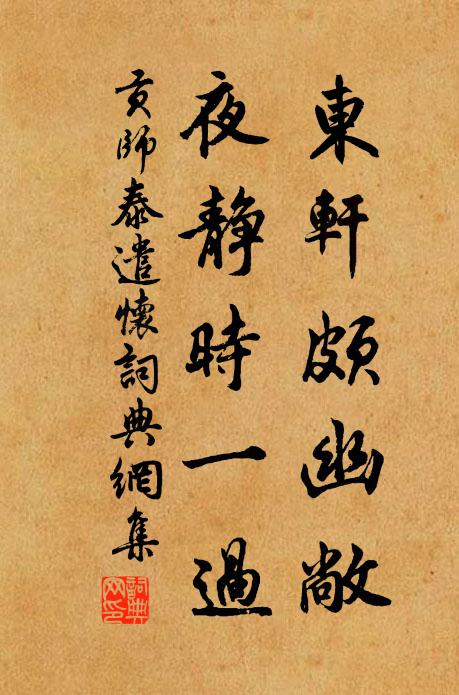 東軒頗幽敞
夜静時一過
貢師泰遣懷詞典網集
詞典
网印